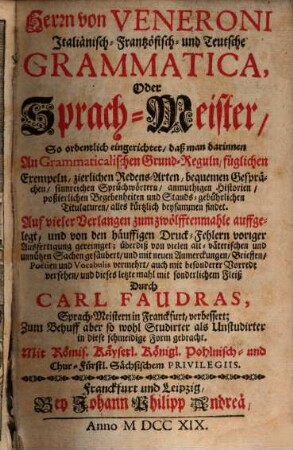 Herrn von VENERONI
Italiänisch-Frantzösisch-und Teutsche
GRAMMATICA,
Oder
Sprach-Meister/
So ordentlich eingerichtet/ daß man darinnen
An Grammaticalischen Grund-Reguln/ füglichen
Exempeln, zierlichen Redens-Arten, bequemen Gesprä-
chen/ sinnreichen Sprüchwörtern/ anmuthigen Historien/
possierlichen Begebenheiten und Stands-gebührlichen
Titulaturen/ alles kürtzlich beysammen findet.
Auf vieler Verlangen zum zwölfftenmahle auffge-
legt/ und von den häuffigen Druck-Fehlern voriger
Ausfertigung gereiniget; überdiß von vielen alt-vätterischen und
unnützen Sachen gesäubert/ und mit neuen Anmerckungen/ Brieffen/
Poësien und Vocabulis vermehrt/ auch mit besonderer Vorrede
versehen/ und dieses letzte mahl mit sonderlichem Fleiß
Durch
CARL FAUDRAS,
Sprach-Meistern in Franckfurt/ verbessert;
Zum Behuff aber so wohl Studirter als Unstudirter
in diese schmeidige Form gebracht.
Mit Römis. Käyserl. Königl. Pohlnisch-und
Chur-Fürstl. Sächsischem PRIVILEGIIS.
Franckfurt und Leipzig,
Bey Johann Philipp Andreä,
Anno M DCC XIX.